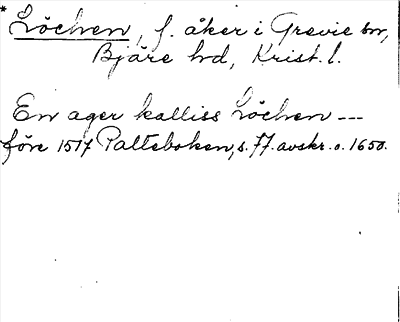 * Löchen, f. åker i Grevie sn,
Bjäre hd, Krist. l.
En ager kalliss Löchen ---
före 1517 Palteboken, s. 77. avskr. o. 1650.